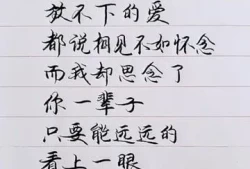 放不下的爱
都说相见不如怀念
而我却思念了
你一辈子
只要能远远的
看上一眼